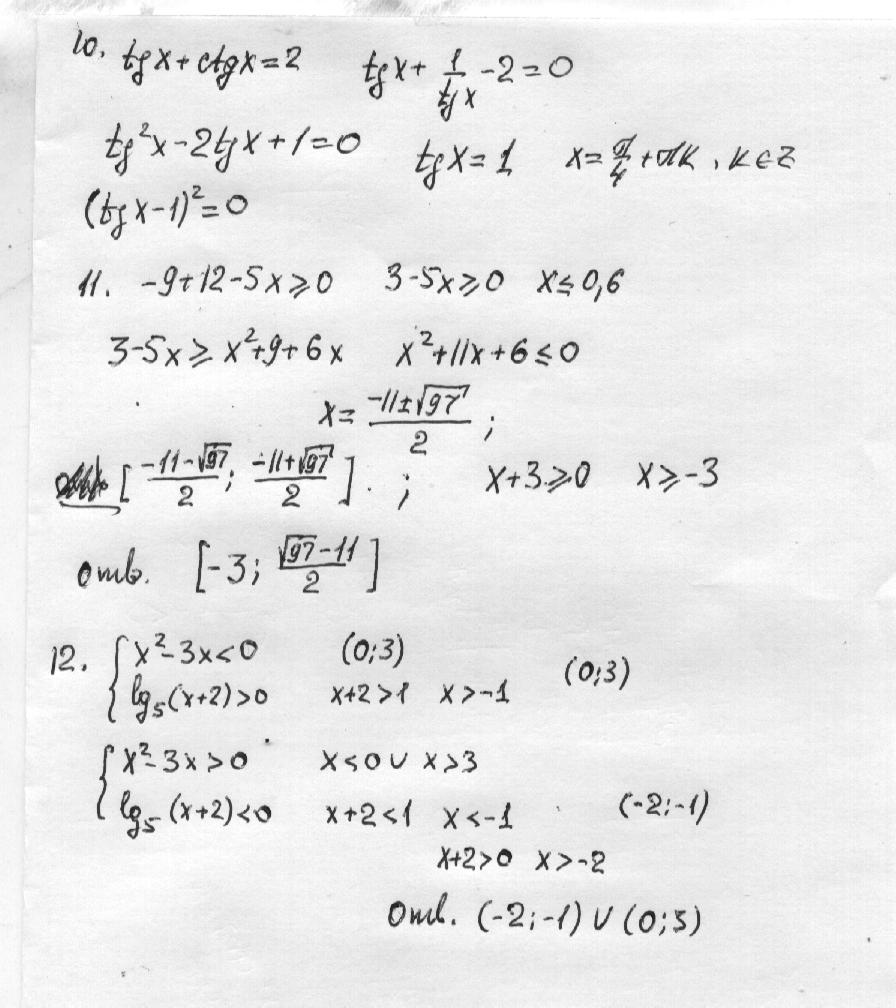 10. tgx + ctgx = 2   tgx + 1/tgx - 2 = 0
tg²x - 2tgx + 1 = 0   tgx = 1   x = π/4 + πk, k∈Z
(tgx - 1)² = 0
11. -9+12-5x ⩾ 0   3-5x ⩾ 0   x ≤ 0,6
3-5x ⩾ x²+9+6x   x²+11x+6 ≤ 0
x = (-11±√97)/2 ;
[(-11-√97)/2; (-11+√97)/2]. ;   x+3 ⩾ 0   x ⩾ -3
Отв. [-3; (√97-11)/2]
12. { x²-3x<0   (0;3)   (0;3)
lg₅(x+2)>0   x+2>1   x>-1
{ x²-3x>0   x<0 ∪ x>3
lg₅(x+2)<0   x+2<1   x<-1   (-2;-1)
x+2>0   x>-2
Отв. (-2;-1) ∪ (0;3)